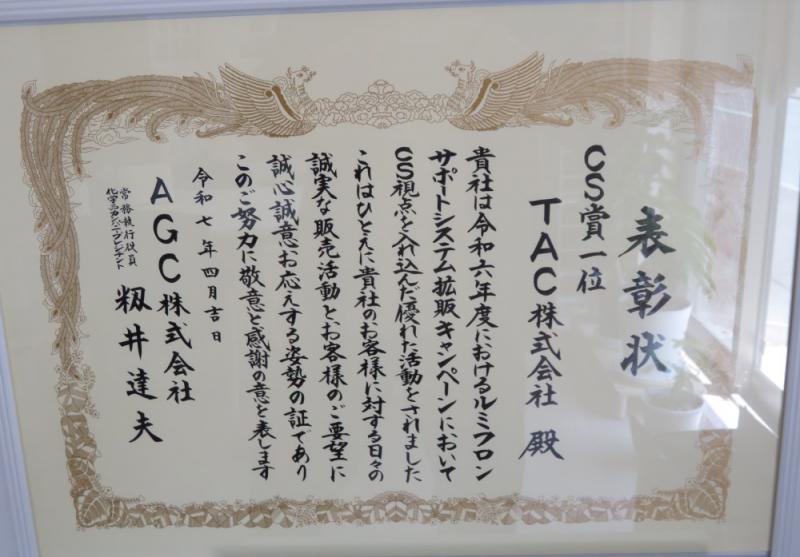 表彰状
CS賞一位
TAC株式会社 殿
貴社は令和六年度におけるルミフロン
サポートシステム拡販キャンペーンにおいて
CS視点を入れ込んだ優れた活動をされました
これはひとえに貴社のお客様に対する日々の
誠実な販売活動とお客様のご要望に
誠心誠意お応えする姿勢の証であり
このご努力に敬意と感謝の意を表します
令和七年四月吉日
AGC株式会社
常務執行役員
化学品カンパニープレジデント
籾井達夫